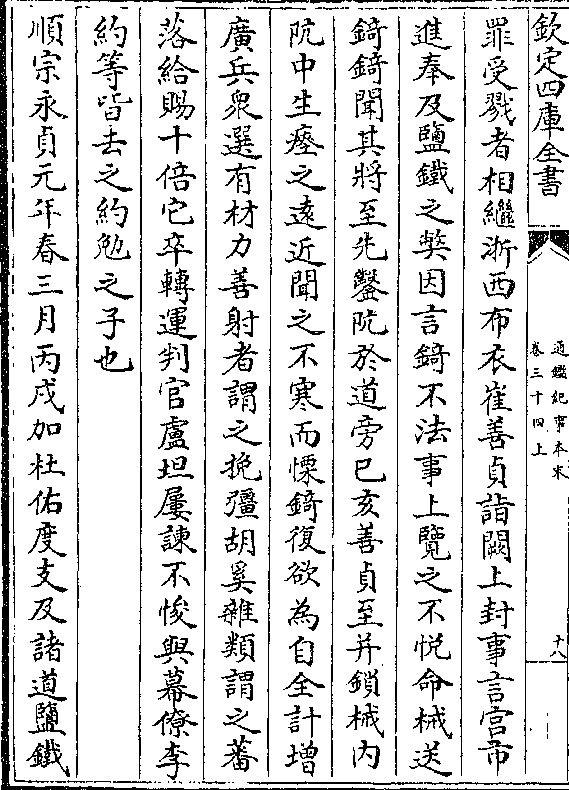 欽定四庫全書
通鑑紀事本末
卷三十四上
十八
罪受戮者相繼浙西布衣崔善貞詣闕上封事言宫市
進奉及鹽鐵之弊因言錡不法事上覽之不悦命械送
錡錡聞其將至先鑿阬於道旁巳亥善貞至并鎖械内
阬中生瘞之逺近聞之不寒而慄錡復欲為自全計増
廣兵衆選有材力善射者謂之挽彊胡奚雜類謂之蕃
落給賜十倍它卒轉運判官盧坦屢諫不悛與幕僚李
約等皆去之約勉之子也
順宗永貞元年春三月丙戌加杜佑度支及諸道鹽鐵